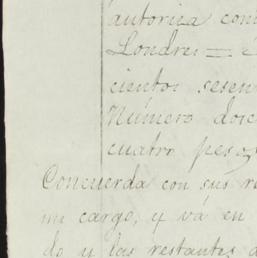 autoriza com
Londres =
cientos sesen
Número dosc
cuatro pesos
Concuerda con sus re
mi cargo, y vá en
do y las restantes d